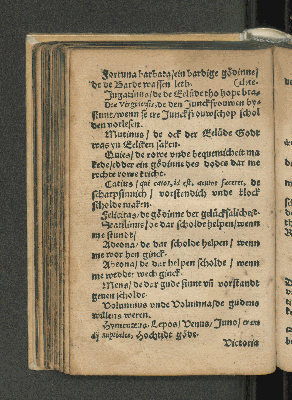 Fortuna barbata/ein bardige gödinne/
de de Barde wassen leth.
Jugatinus/de de Eelüde tho hope bra
Dea Virginensis, de den Junckfrouwen by-
stunt/wenn se ere Junckfrouwschop schol
den vorlesen.
Mutinus/ de ock der Eelüde Godt
was yn Eeliken saken.
Quies/ de rowe vnde bequemicheit ma
kede/edder ein gödinne des dodes dar me
rechte rowe kricht.
Catius/ quia catos, id est, acutos faceret, de
scharpsinnich / vorstendich vnde klock
scholde maken.
Felicitas/ de gödinne der gelücksalicheit.
Statilinus/ de dar scholde helpen/wenn
me stundt/
Adeona/ de dar scholde helpen/ wenn
me wor hen ginck.
Abeona/ de dar helpen scholde / wenn
me wedder wech ginck.
Mens/ de dar gude sinne vñ vorstandt
geuen scholde.
Volumnus vnde Volumna/de gudens
willens weren.
Hymenæus, Lepos/ Venus/ Juno/ erant
dij nuptiales, Hochtidt göde.
Victoria